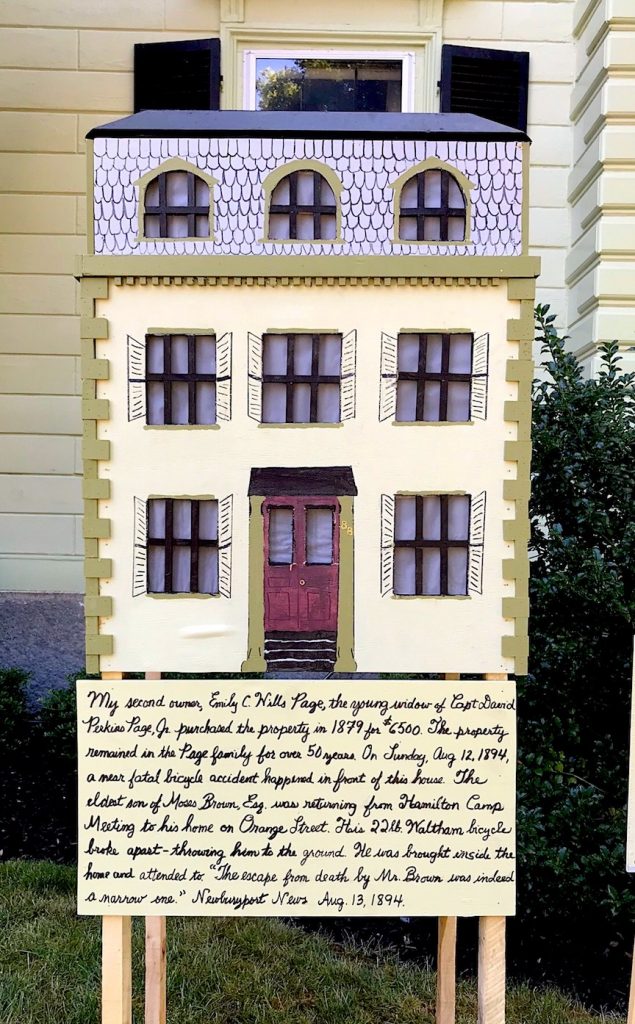 88
My second owner, Emily C. Wills Page, the young widow of Capt David
Perkins Page, Jr. purchased the property in 1879 for $6500. The property
remained in the Page family for over 50 years. On Sunday, Aug 12, 1894,
a near fatal bicycle accident happened in front of this house. The
eldest son of Moses Brown, Esq. was returning from Hamilton Camp
Meeting to his home on Orange Street. His 22lb. Waltham bicycle
broke apart - throwing him to the ground. He was brought inside the
home and attended to. "The escape from death by Mr. Brown was indeed
a narrow one." Newburyport News Aug. 13, 1894.